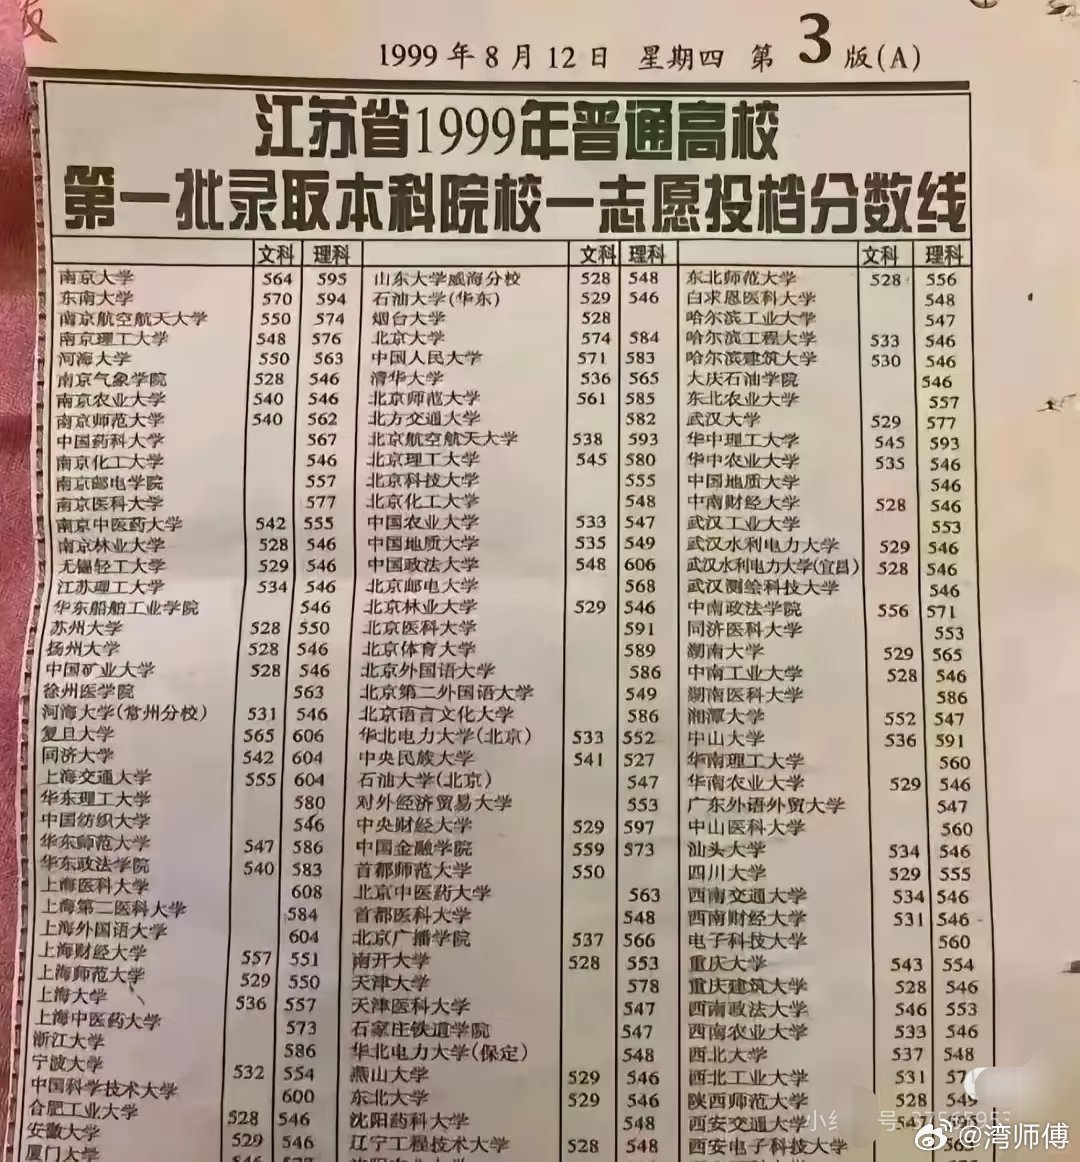 1999年8月12日 星期四 第3版(A)
江苏省1999年普通高校
第一批录取本科院校一志愿投档分数线
文科 理科 文科 理科 文科 理科
南京大学 564 595 山东大学威海分校 528 548 东北师范大学 528 556
东南大学 570 594 石油大学(华东) 529 546 白求恩医科大学 548
南京航空航天大学 550 574 烟台大学 528 哈尔滨工业大学 547
南京理工大学 548 576 北京大学 574 584 哈尔滨工程大学 533 546
河海大学 550 563 中国人民大学 571 583 哈尔滨建筑大学 530 546
南京气象学院 528 546 清华大学 536 565 大庆石油学院 546
南京农业大学 540 546 北京师范大学 561 585 东北农业大学 557
南京师范大学 540 562 北方交通大学 582 武汉大学 529 577
中国药科大学 567 北京航空航天大学 538 593 华中理工大学 545 593
南京化工大学 546 北京理工大学 545 580 华中农业大学 535 546
南京邮电学院 557 北京科技大学 555 中国地质大学 546
南京医科大学 577 北京化工大学 548 中南财经大学 528 546
南京中医药大学 542 555 中国农业大学 533 547 武汉工业大学 553
南京林业大学 528 546 中国地质大学 535 549 武汉水利电力大学 529 546
无锡轻工大学 529 546 中国政法大学 548 606 武汉水利电力大学(宜昌) 528 546
江苏理工大学 534 546 北京邮电大学 568 武汉测绘科技大学 546
华东船舶工业学院 546 北京林业大学 529 546 中南政法学院 556 571
苏州大学 528 550 北京医科大学 591 同济医科大学 553
扬州大学 528 546 北京体育大学 589 湖南大学 529 565
中国矿业大学 528 546 北京外国语大学 586 中南工业大学 528 546
徐州医学院 563 北京第二外国语大学 549 湖南医科大学 586
河海大学(常州分校) 531 546 北京语言文化大学 586 湘潭大学 552 547
复旦大学 565 606 华北电力大学(北京) 533 552 中山大学 536 591
同济大学 542 604 中央民族大学 541 527 华南理工大学 560
上海交通大学 555 604 石油大学(北京) 547 华南农业大学 529 546
华东理工大学 580 对外经济贸易大学 553 广东外语外贸大学 547
中国纺织大学 546 中央财经大学 529 597 中山医科大学 560
华东师范大学 547 586 中国金融学院 559 573 汕头大学 534 546
华东政法学院 540 583 首都师范大学 550 四川大学 529 555
上海医科大学 608 北京中医药大学 563 西南交通大学 534 546
上海第二医科大学 584 首都医科大学 548 西南财经大学 531 546
上海外国语大学 604 北京广播学院 537 566 电子科技大学 560
上海财经大学 557 551 南开大学 528 553 重庆大学 543 554
上海师范大学 529 550 天津大学 578 重庆建筑大学 528 546
上海大学 536 557 天津医科大学 547 西南政法大学 546 553
上海中医药大学 573 石家庄铁道学院 547 西南农业大学 533 546
浙江大学 586 华北电力大学(保定) 548 西北大学 537 548
宁波大学 532 554 燕山大学 529 546 西北工业大学 531
中国科学技术大学 600 东北大学 529 546 陕西师范大学 528 549
合肥工业大学 528 546 沈阳药科大学 548 西安交通大学
安徽大学 529 546 辽宁工程技术大学 528 548 西安电子科技大学
厦门大学
@湾师傅